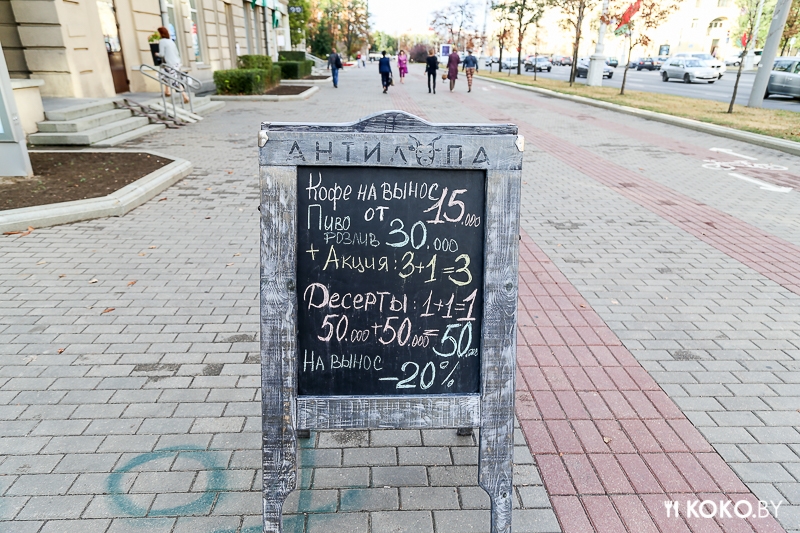 АНТИЛОПА
Кофе на вынос 15.000
Пиво от
розлив 30.000
+ Акция: 3+1=3
Десерты: 1+1=1
50.000+50.000=50.000
На вынос -20%
KOKO.BY